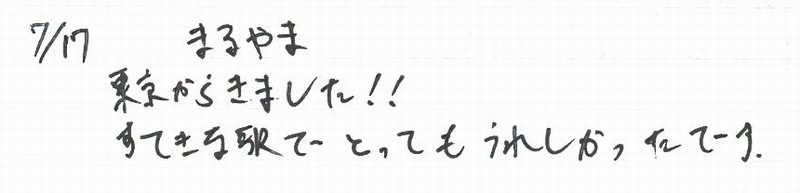 7/17 まるやま
東京からきました!!
すてきな駅でとってもうれしかったでーす.